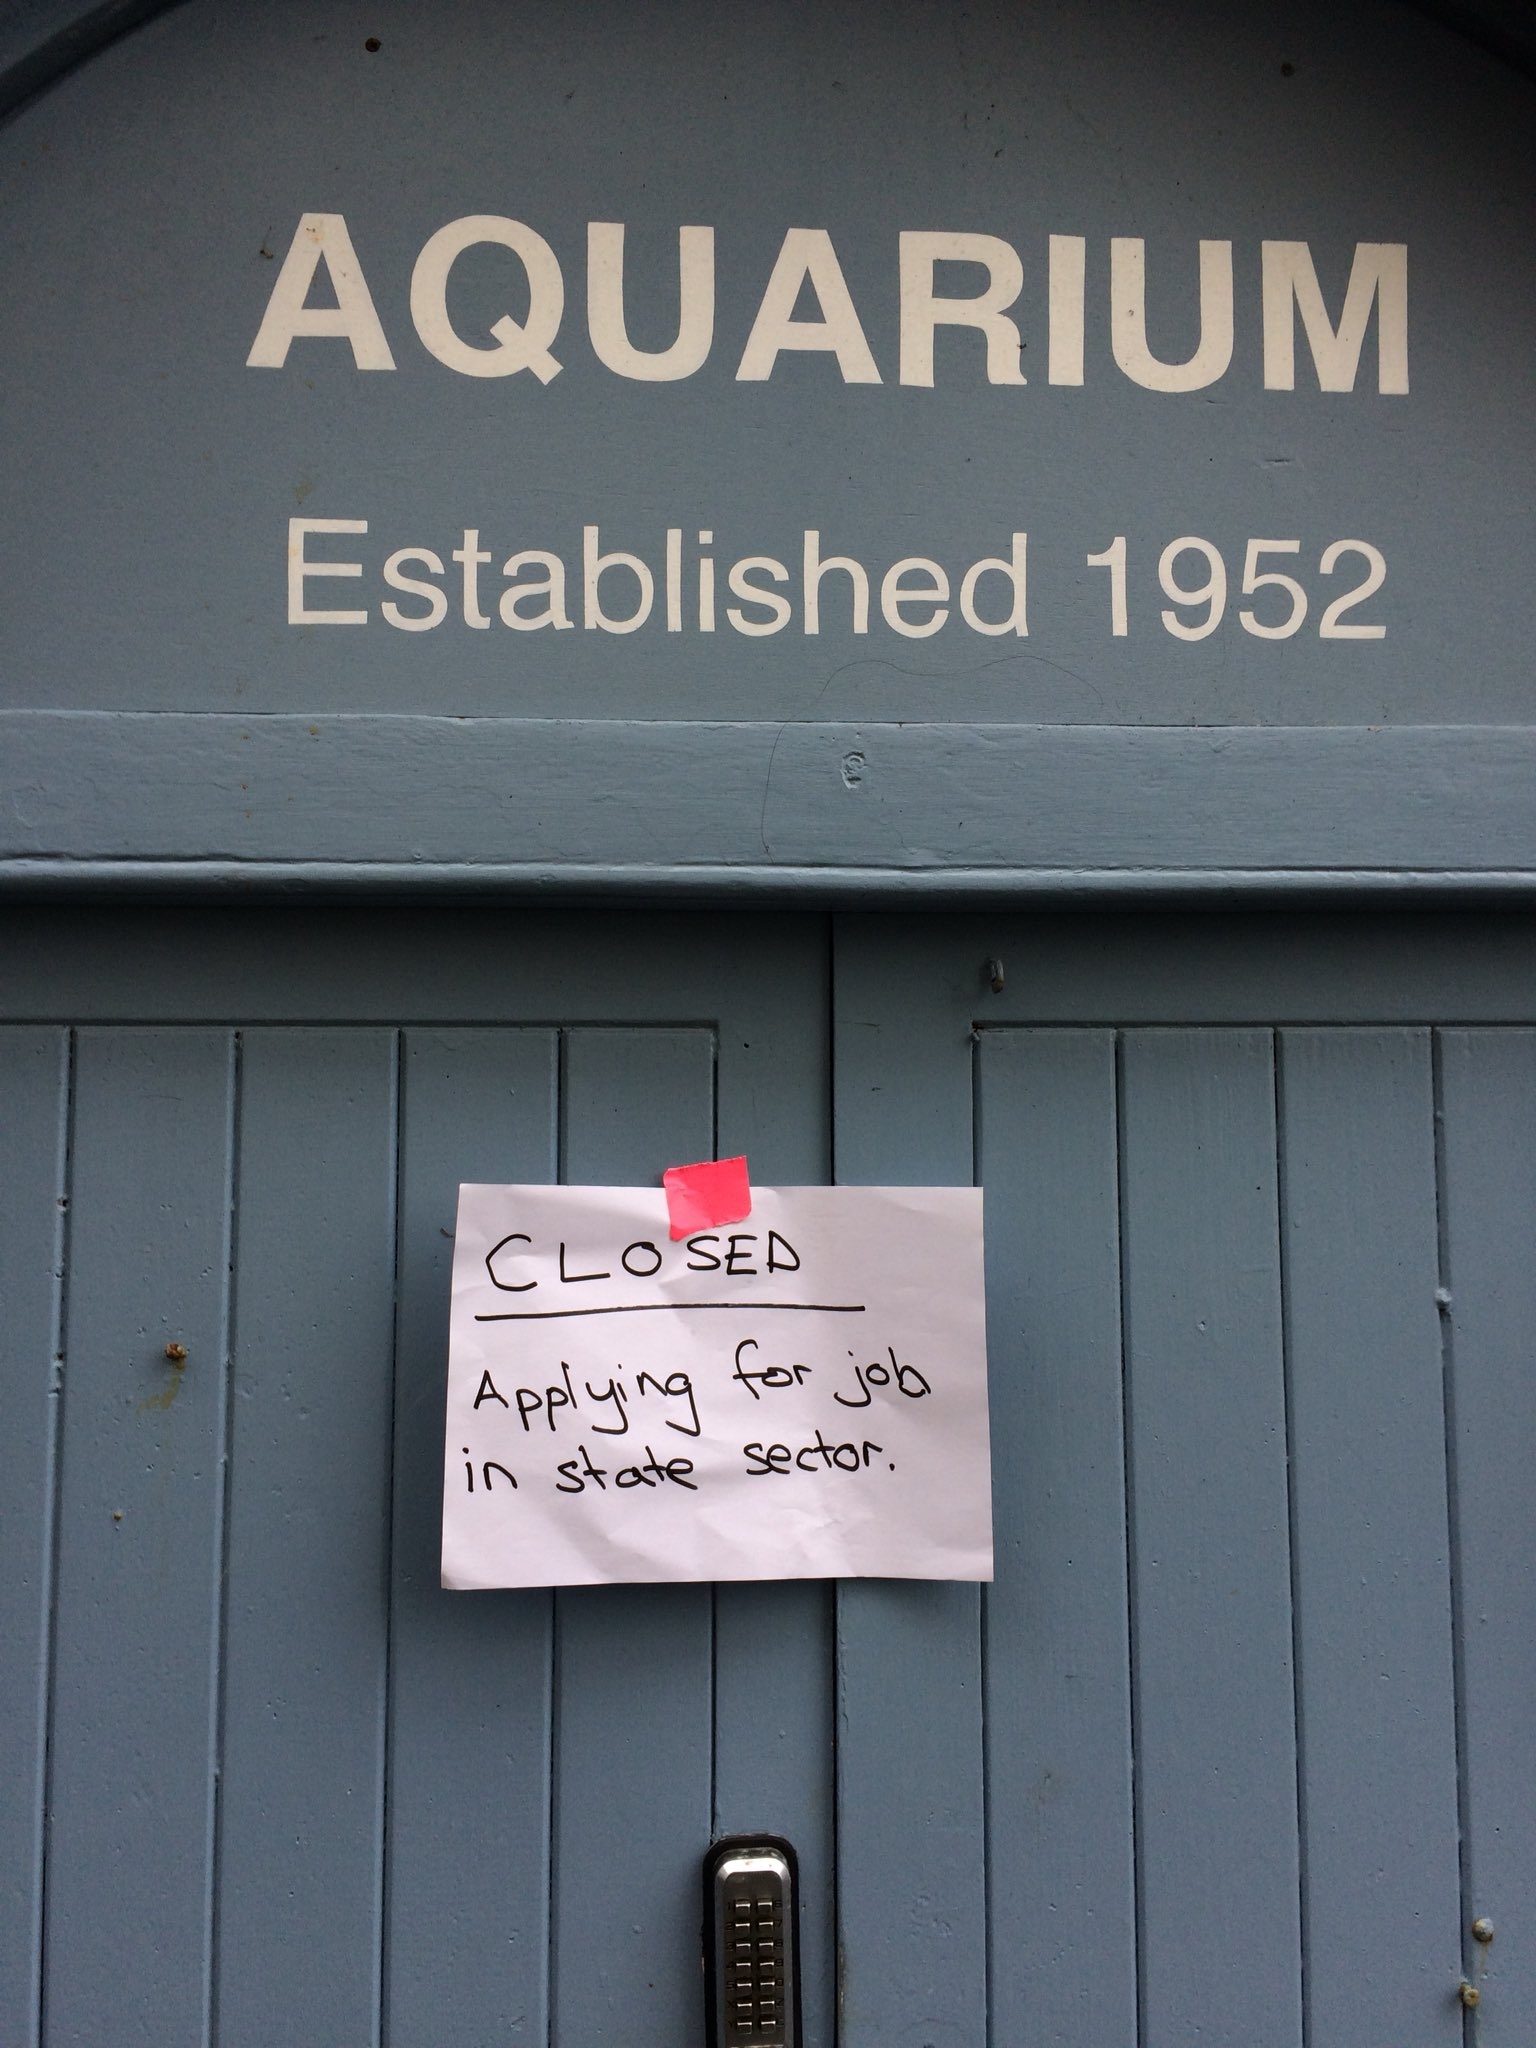 AQUARIUM
Established 1952
CLOSED
Applying for job
in state sector.